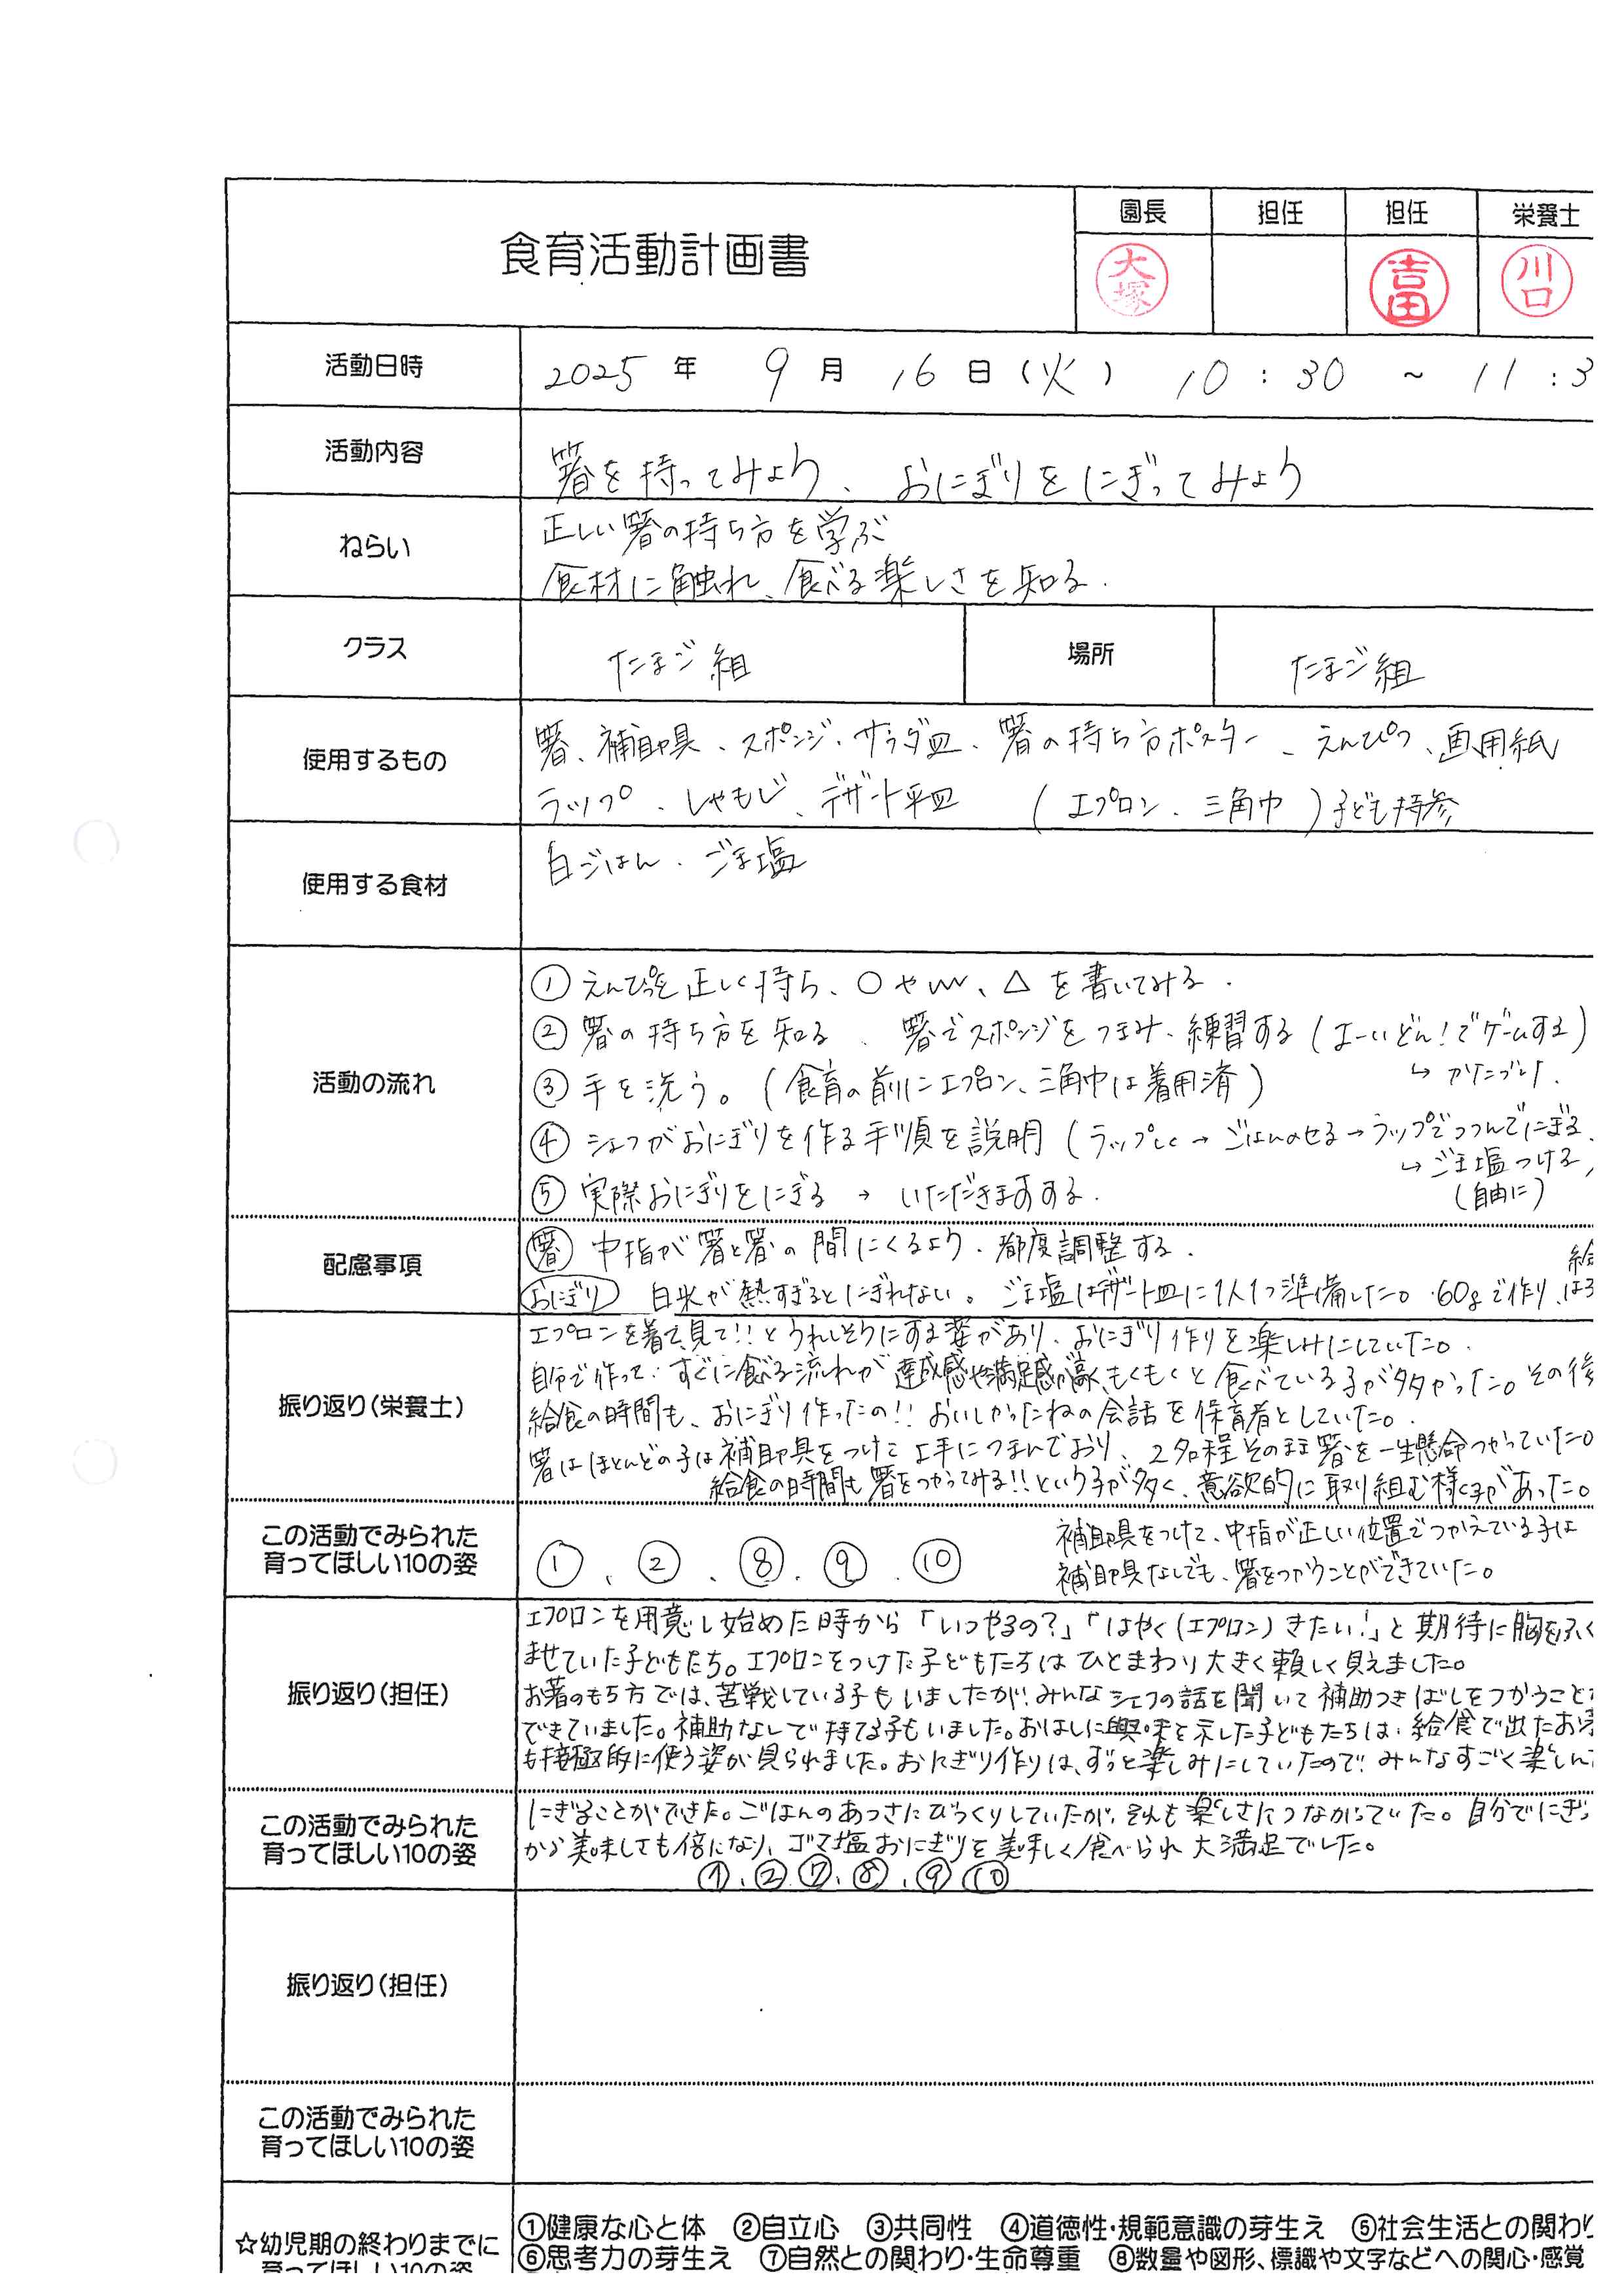 食育活動計画書
園長 担任 担任 栄養士
大塚 吉田 川口
活動日時 2025年 9月 16日(火) 10:30 ~ 11:3
活動内容 箸を持ってみよう、おにぎりをにぎってみよう
ねらい 正しい箸の持ち方を学ぶ
食材に触れ、食べる楽しさを知る.
クラス たまご組 場所 たまご組
使用するもの 箸、補助具、スポンジ、サラダ皿、箸の持ち方ポスター、えんぴつ、画用紙
ラップ、しゃもじ、デザート平皿 (エプロン、三角巾)子ども持参
使用する食材 白ごはん、ごま塩
活動の流れ
① えんぴつを正しく持ち、○や〰、△を書いてみる.
② 箸の持ち方を知る、箸でスポンジをつまみ、練習する(よーいどん!でゲームする)
↳ かたづけ.
③ 手を洗う。(食育の前にエプロン、三角巾は着用済)
④ シェフがおにぎりを作る手順を説明(ラップしく→ごはんのせる→ラップでつつんでにぎる
↳ ごま塩つける
(自由に)
⑤ 実際おにぎりをにぎる → いただきますする.
配慮事項 箸 中指が箸と箸の間にくるよう、都度調整する.
給
おにぎり 白米が熱すぎるとにぎれない。ごま塩はデザート皿に1人1つ準備した。60gで作り、
振り返り(栄養士)
エプロンを着て見て!!とうれしそうにする姿があり、おにぎり作りを楽しみにしていた。
自分で作って、すぐに食べる流れが達成感や満足感が高く、もくもくと食べている子が多かった。その後
給食の時間も、おにぎり作ったの!!おいしかったねの会話を保育者としていた。
箸はほとんどの子は補助具をつけて上手につまんでおり、2名程そのまま箸を一生懸命つかっていた。
給食の時間も箸をつかってみる!!という子が多く、意欲的に取り組む様子があった。
この活動でみられた
育ってほしい10の姿
①、②、⑧、⑨、⑩
補助具をつけて、中指が正しい位置でつかえている子は
補助具なしでも、箸をつかうことができていた。
振り返り(担任)
エプロンを用意し始めた時から「いつやるの?」「はやく(エプロン)きたい!」と期待に胸をふく
ませていた子どもたち。エプロンをつけた子どもたちはひとまわり大きく頼しく見えました。
お箸のもち方では、苦戦している子もいましたが、みんなシェフの話を聞いて補助つきばしをつかうことが
できていました。補助なしで持てる子もいました。おはしに興味を示した子どもたちは、給食で出たお箸
も積極的に使う姿が見られました。おにぎり作りは、ずっと楽しみにしていたので、みんなすごく楽しんで
この活動でみられた
育ってほしい10の姿
にぎることができた。ごはんのあつさにびっくりしていたが、それも楽しさにつながっていた。自分でにぎっ
から美味しさも倍になり、ゴマ塩おにぎりを美味しく食べられ大満足でした。
①、②、⑦、⑧、⑨、⑩
振り返り(担任)
この活動でみられた
育ってほしい10の姿
☆幼児期の終わりまでに
育ってほしい10の姿
①健康な心と体 ②自立心 ③共同性 ④道徳性・規範意識の芽生え ⑤社会生活との関わり
⑥思考力の芽生え ⑦自然との関わり・生命尊重 ⑧数量や図形、標識や文字などへの関心・感覚